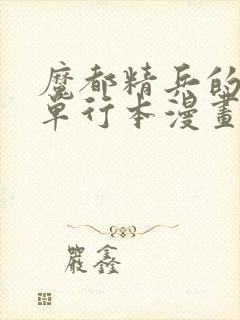 魔都精兵的
單行本漫畫
嚴鑫